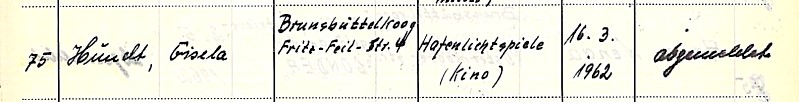 75 Hündt, Gisela Brunsbüttelkoog Fritz-Feil-Str. 4 Hafenlichtspiele (Kino) 16. 3. 1962 abgemeldet